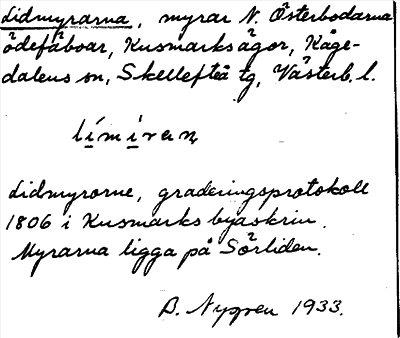 Lidmyrarna, myrar N. Österbodarna
ödefäboar, Kusmarks ägor, Kåge-
dalens sn, Skellefteå tg, Västerb. l.
Lidmyrorne, graderingsprotokoll
1806 i Kusmarks byaskrin.
Myrarna ligga på Sörliden.
B. Nygren 1933.